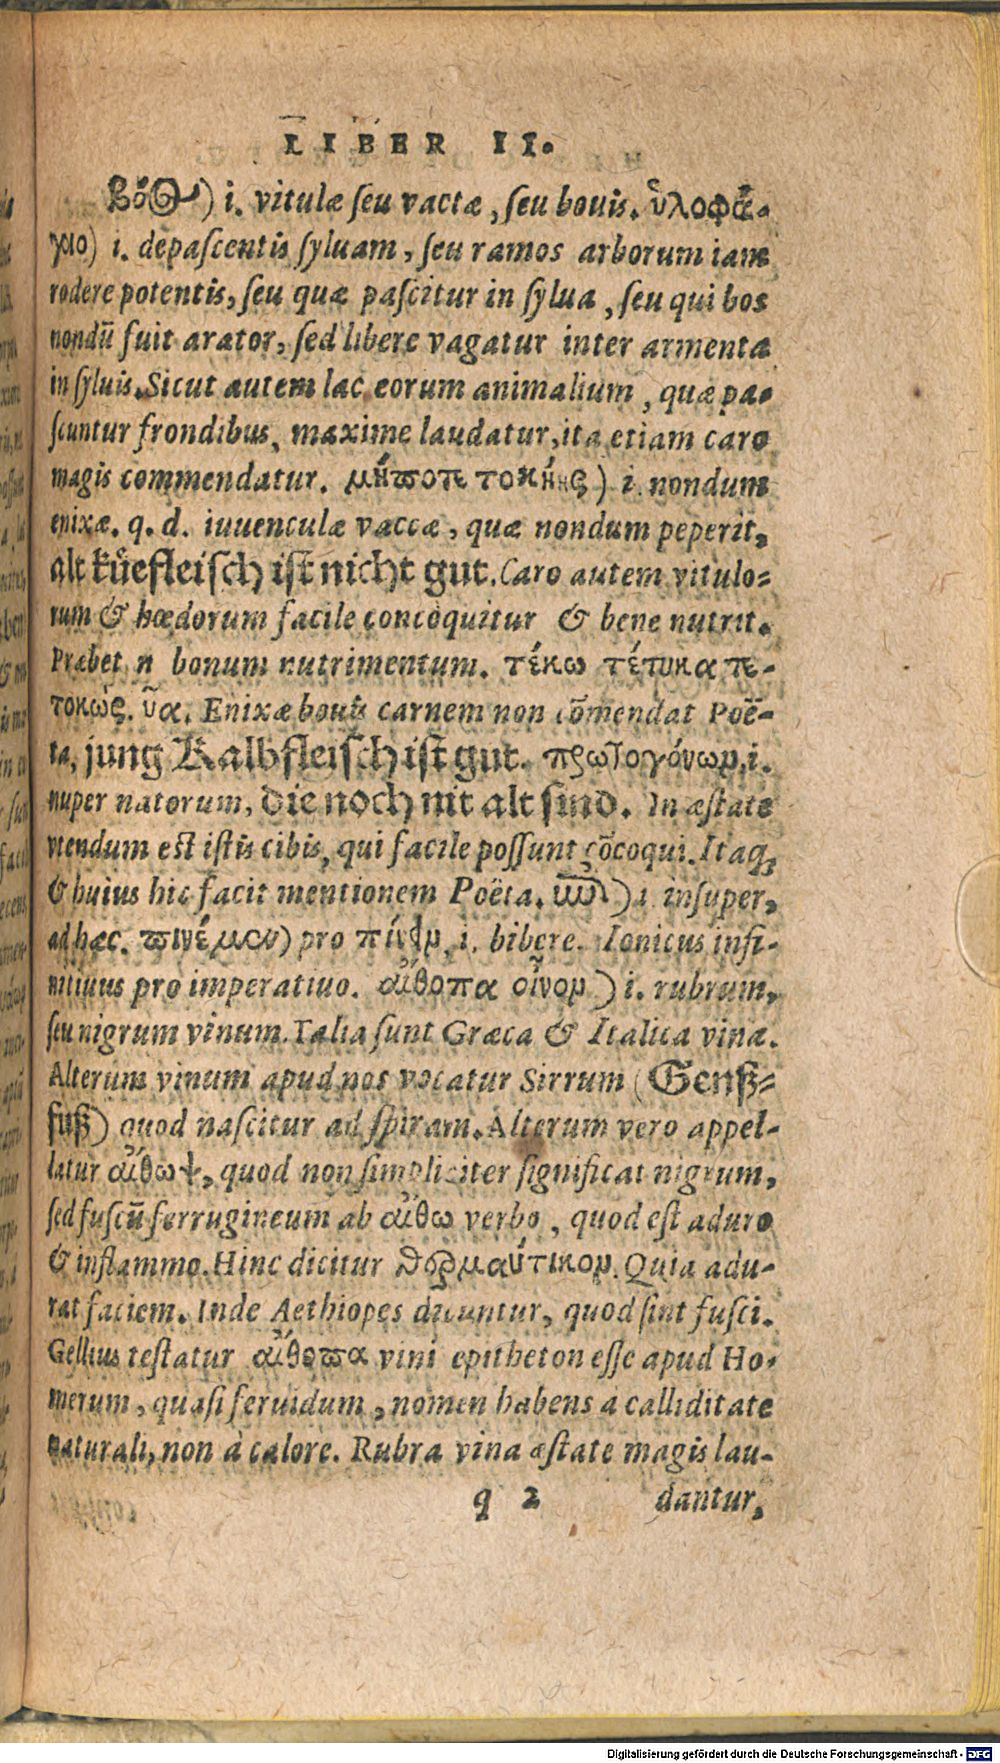 LIBER II.
βοὸς) i. vitulæ seu vaccæ, seu bouis. ὑλοφά-
γοιο) i. depascentis syluam, seu ramos arborum iam
rodere potentis, seu quæ pascitur in sylua, seu qui bos
nondū fuit arator, sed libere vagatur inter armenta
in syluis. Sicut autem lac eorum animalium, quæ pa-
scuntur frondibus, maxime laudatur, ita etiam caro
magis commendatur. μήπω τετοκήης) i. nondum
enixæ. q. d. iuuenculæ vaccæ, quæ nondum peperit,
alt kuͤefleisch ist nicht gut. Caro autem vitulo-
rum & hœdorum facile concoquitur & bene nutrit.
Præbet n bonum nutrimentum. τέκω τέτυκα τε-
τοκὼς. ῦα. Enixæ bouis carnem non cōmendat Poë-
ta, jung Kalbfleisch ist gut. πρωτογόνων, i.
nuper natorum, die noch nit alt sind. In æstate
vtendum est istis cibis, qui facile possunt cōcoqui. Itaq;
& huius hic facit mentionem Poëta. ἐπὶ) i insuper,
ad hæc. πινέμεν) pro πίνειν, i. bibere. Ionicus infi-
nitiuus pro imperatiuo. αἴθοπα οἶνον) i. rubrum,
seu nigrum vinum. Talia sunt Græca & Italica vina.
Alterum vinum apud nos vocatur Sirrum (Genß-
fuß) quod nascitur ad spiram. Alterum vero appel-
latur αἴθωψ, quod non simpliciter significat nigrum,
sed fuscū ferrugineum ab αἴθω verbo, quod est aduro
& inflammo. Hinc dicitur θερμαντικον. Quia adu-
rat faciem. Inde Aethiopes dicuntur, quod sint fusci.
Gellius testatur αἴθοπα vini epitheton esse apud Ho-
merum, quasi feruidum, nomen habens à calliditate
naturali, non à calore. Rubra vina æstate magis lau-
q 2 dantur,
Digitalisierung gefördert durch die Deutsche Forschungsgemeinschaft - DFG